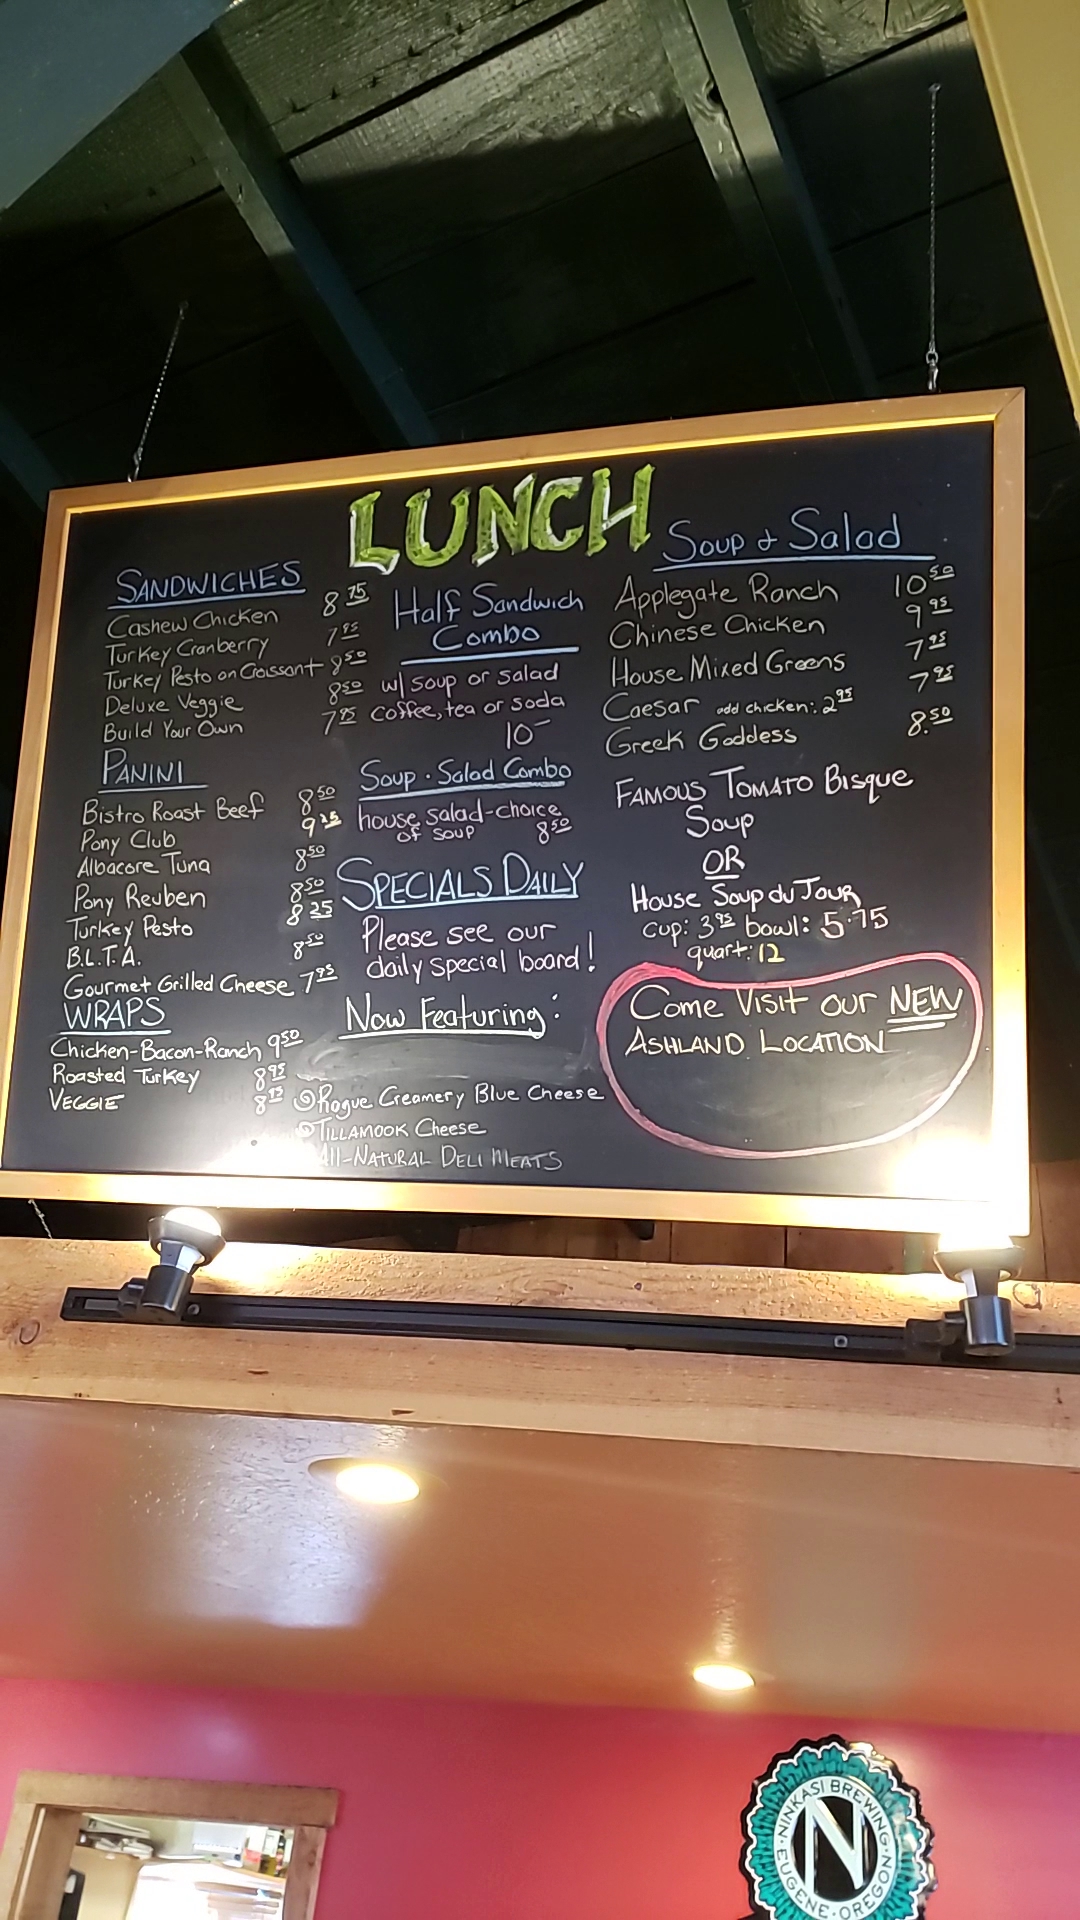 LUNCH
SANDWICHES
Cashew Chicken 8 75
Turkey Cranberry 7 95
Turkey Pesto on Croissant 8 50
Deluxe Veggie 8 50
Build Your Own 7 95
PANINI
Bistro Roast Beef 8 50
Pony Club 9 25
Albacore Tuna 8 50
Pony Reuben 8 50
Turkey Pesto 8 25
B.L.T.A. 8 50
Gourmet Grilled Cheese 7 95
WRAPS
Chicken-Bacon-Ranch 9 50
Roasted Turkey 8 95
VEGGIE
Half Sandwich
Combo
w/ soup or salad
Coffee, tea or soda
10-
Soup · Salad Combo
house salad-choice
of soup 8 50
SPECIALS DAILY
Please see our
daily special board!
Now Featuring:
Rogue Creamery Blue Cheese
TILLAMOOK Cheese
All-NATURAL DELI MEATS
Soup & Salad
Applegate Ranch 10 50
Chinese Chicken 9 95
House Mixed Greens 7 95
Caesar add chicken: 2 95 7 95
Greek Goddess 8.50
FAMOUS TOMATO Bisque
Soup
OR
House Soup du Jour
cup: 3 95 bowl: 5.75
quart: 12
Come Visit our NEW
ASHLAND LOCATION
NINKASI BREWING
N
EUGENE · OREGON